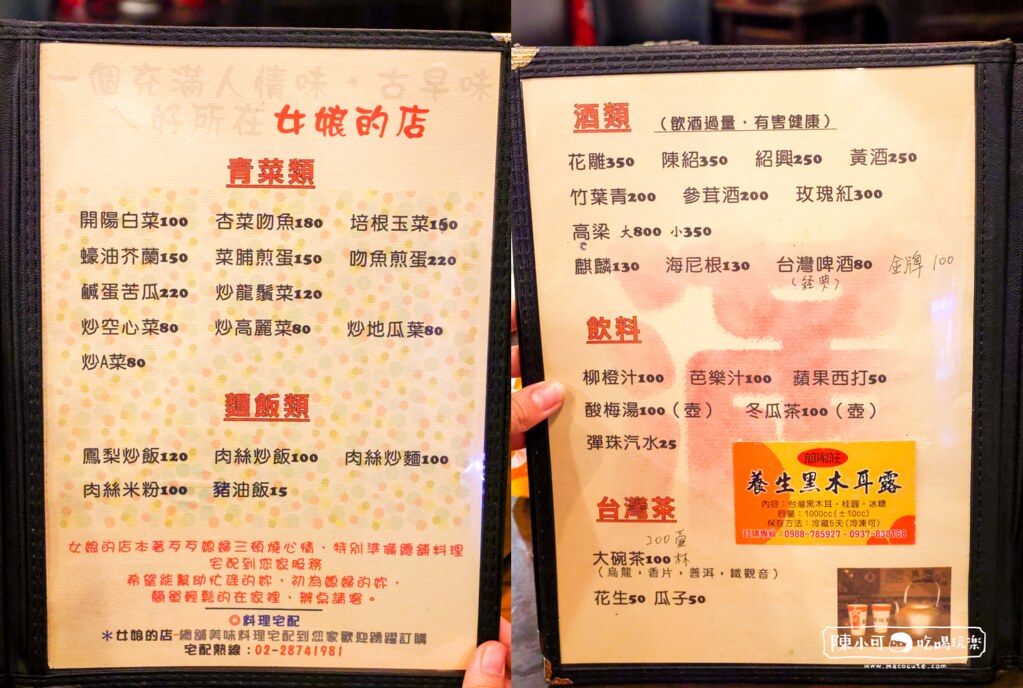 一個充滿人情味，古早味
ㄟ好所在 女娘的店
青菜類
開陽白菜100 杏菜吻魚180 培根玉菜150
蠔油芥蘭150 菜脯煎蛋150 吻魚煎蛋220
鹹蛋苦瓜220 炒龍鬚菜120
炒空心菜80 炒高麗菜80 炒地瓜葉80
炒A菜80
麵飯類
鳳梨炒飯120 肉絲炒飯100 肉絲炒麵100
肉絲米粉100 豬油飯15
女娘的店本著歹歹媳婦三頓燒心情，特別準備總舖料理
宅配到您家服務
希望能幫助忙碌的妳，初為媳婦的妳，
簡單輕鬆的在家裡，辦桌請客。
料理宅配
＊女娘的店-總舖美味料理宅配到您家歡迎踴躍訂購
宅配熱線：02-28741981
酒類 （飲酒過量，有害健康）
花雕350 陳紹350 紹興250 黃酒250
竹葉青200 參茸酒200 玫瑰紅300
高梁 大800 小350
麒麟130 海尼根130 台灣啤酒80 金牌 100
（經典）
飲料
柳橙汁100 芭樂汁100 蘋果西打50
酸梅湯100（壺） 冬瓜茶100（壺）
彈珠汽水25
養生黑木耳露
內容：台灣黑木耳、桂圓、冰糖
容量：1000cc(±10cc)
保存方法：冷藏5天(冷凍可)
訂購專線：0988-785927、0937-838168
台灣茶
200壺
大碗茶100杯
（烏龍，香片，普洱，鐵觀音）
花生50 瓜子50
陳小可 吃喝玩樂
www.macocute.com